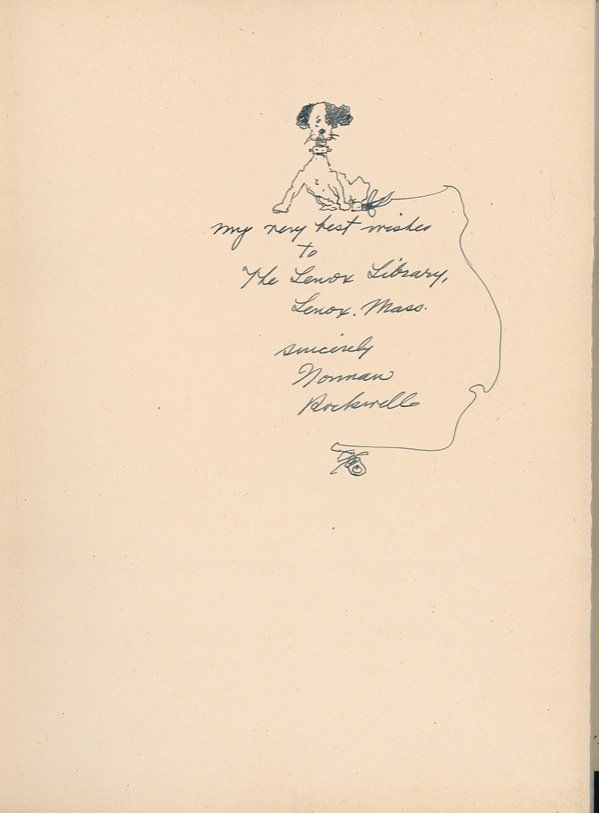 my very best wishes
to
The Lenox Library,
Lenox. Mass.
sincerely
Norman
Rockwell